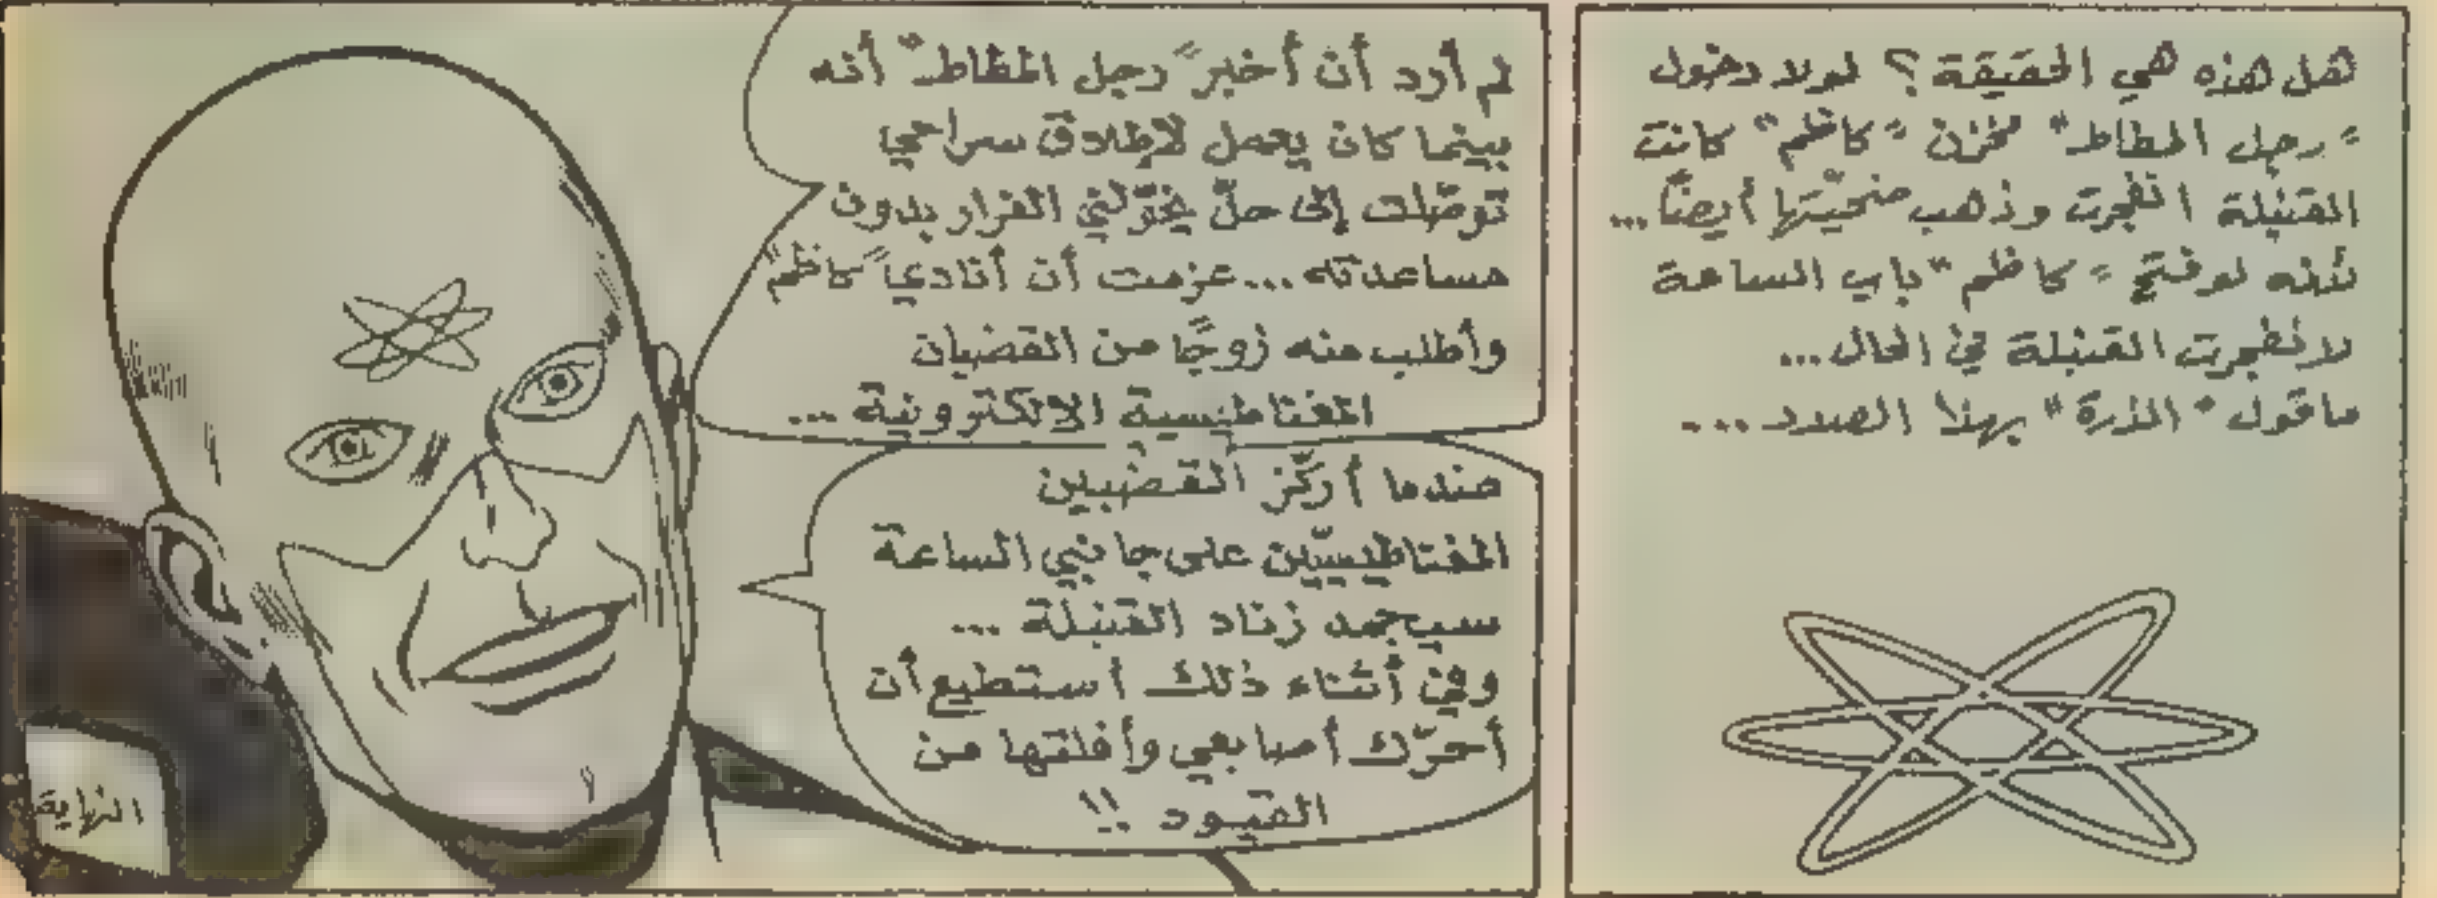 هل هذه هي الحقيقة؟ لولا دخول
"رجل المطاط" مخزن "كاظم" كانت
القنبلة انفجرت وذهب ضحيّتها أيضًا...
لأنه لو فتح "كاظم" باب الساعة
لانفجرت القنبلة في الحال...
ماقول "الذرة" بهذا الصدد...
لم أرد أن أخبر "رجل المطاط" أنه
بينما كان يعمل لإطلاق سراحي
توصّلت إلى حلّ يخوّلني الفرار بدون
مساعدته...عزمت أن أنادي "كاظم"
وأطلب منه زوجًا من القضبان
المغناطيسية الالكترونية...
عندما أركّز القضيبين
المغناطيسيّين على جانبي الساعة
سيجمد زناد القنبلة...
وفي أثناء ذلك أستطيع أن
أحرّك أصابعي وأفلتها من
القيود!!
النهاية